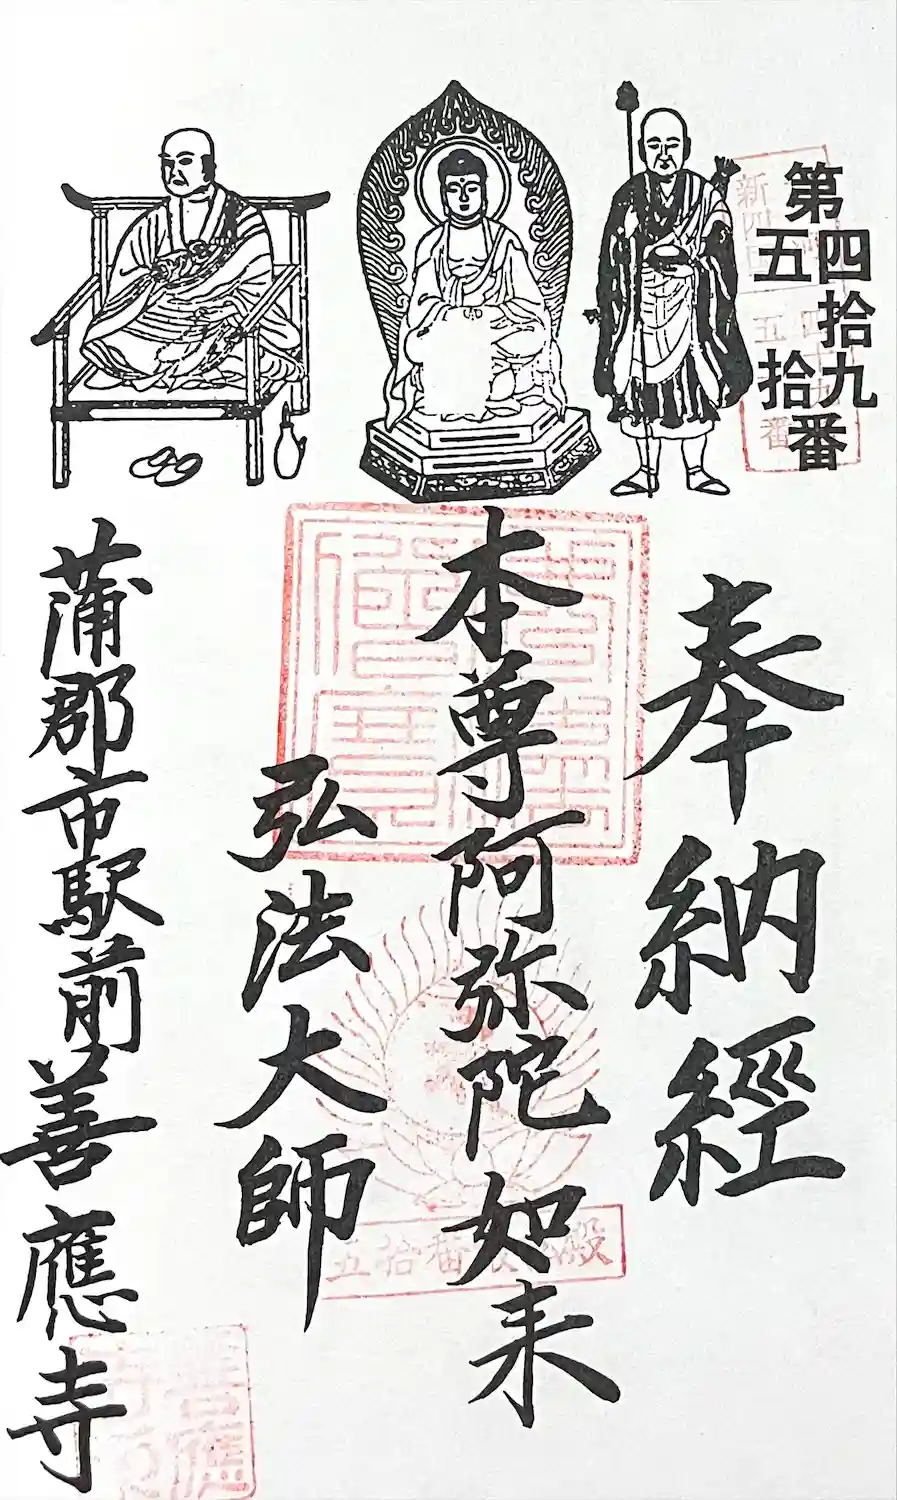 第四拾九
五拾番
奉納經
本尊阿弥陀如来
弘法大師
蒲郡市駅前善應寺
新四国
四十九
五
番
五拾番
殿